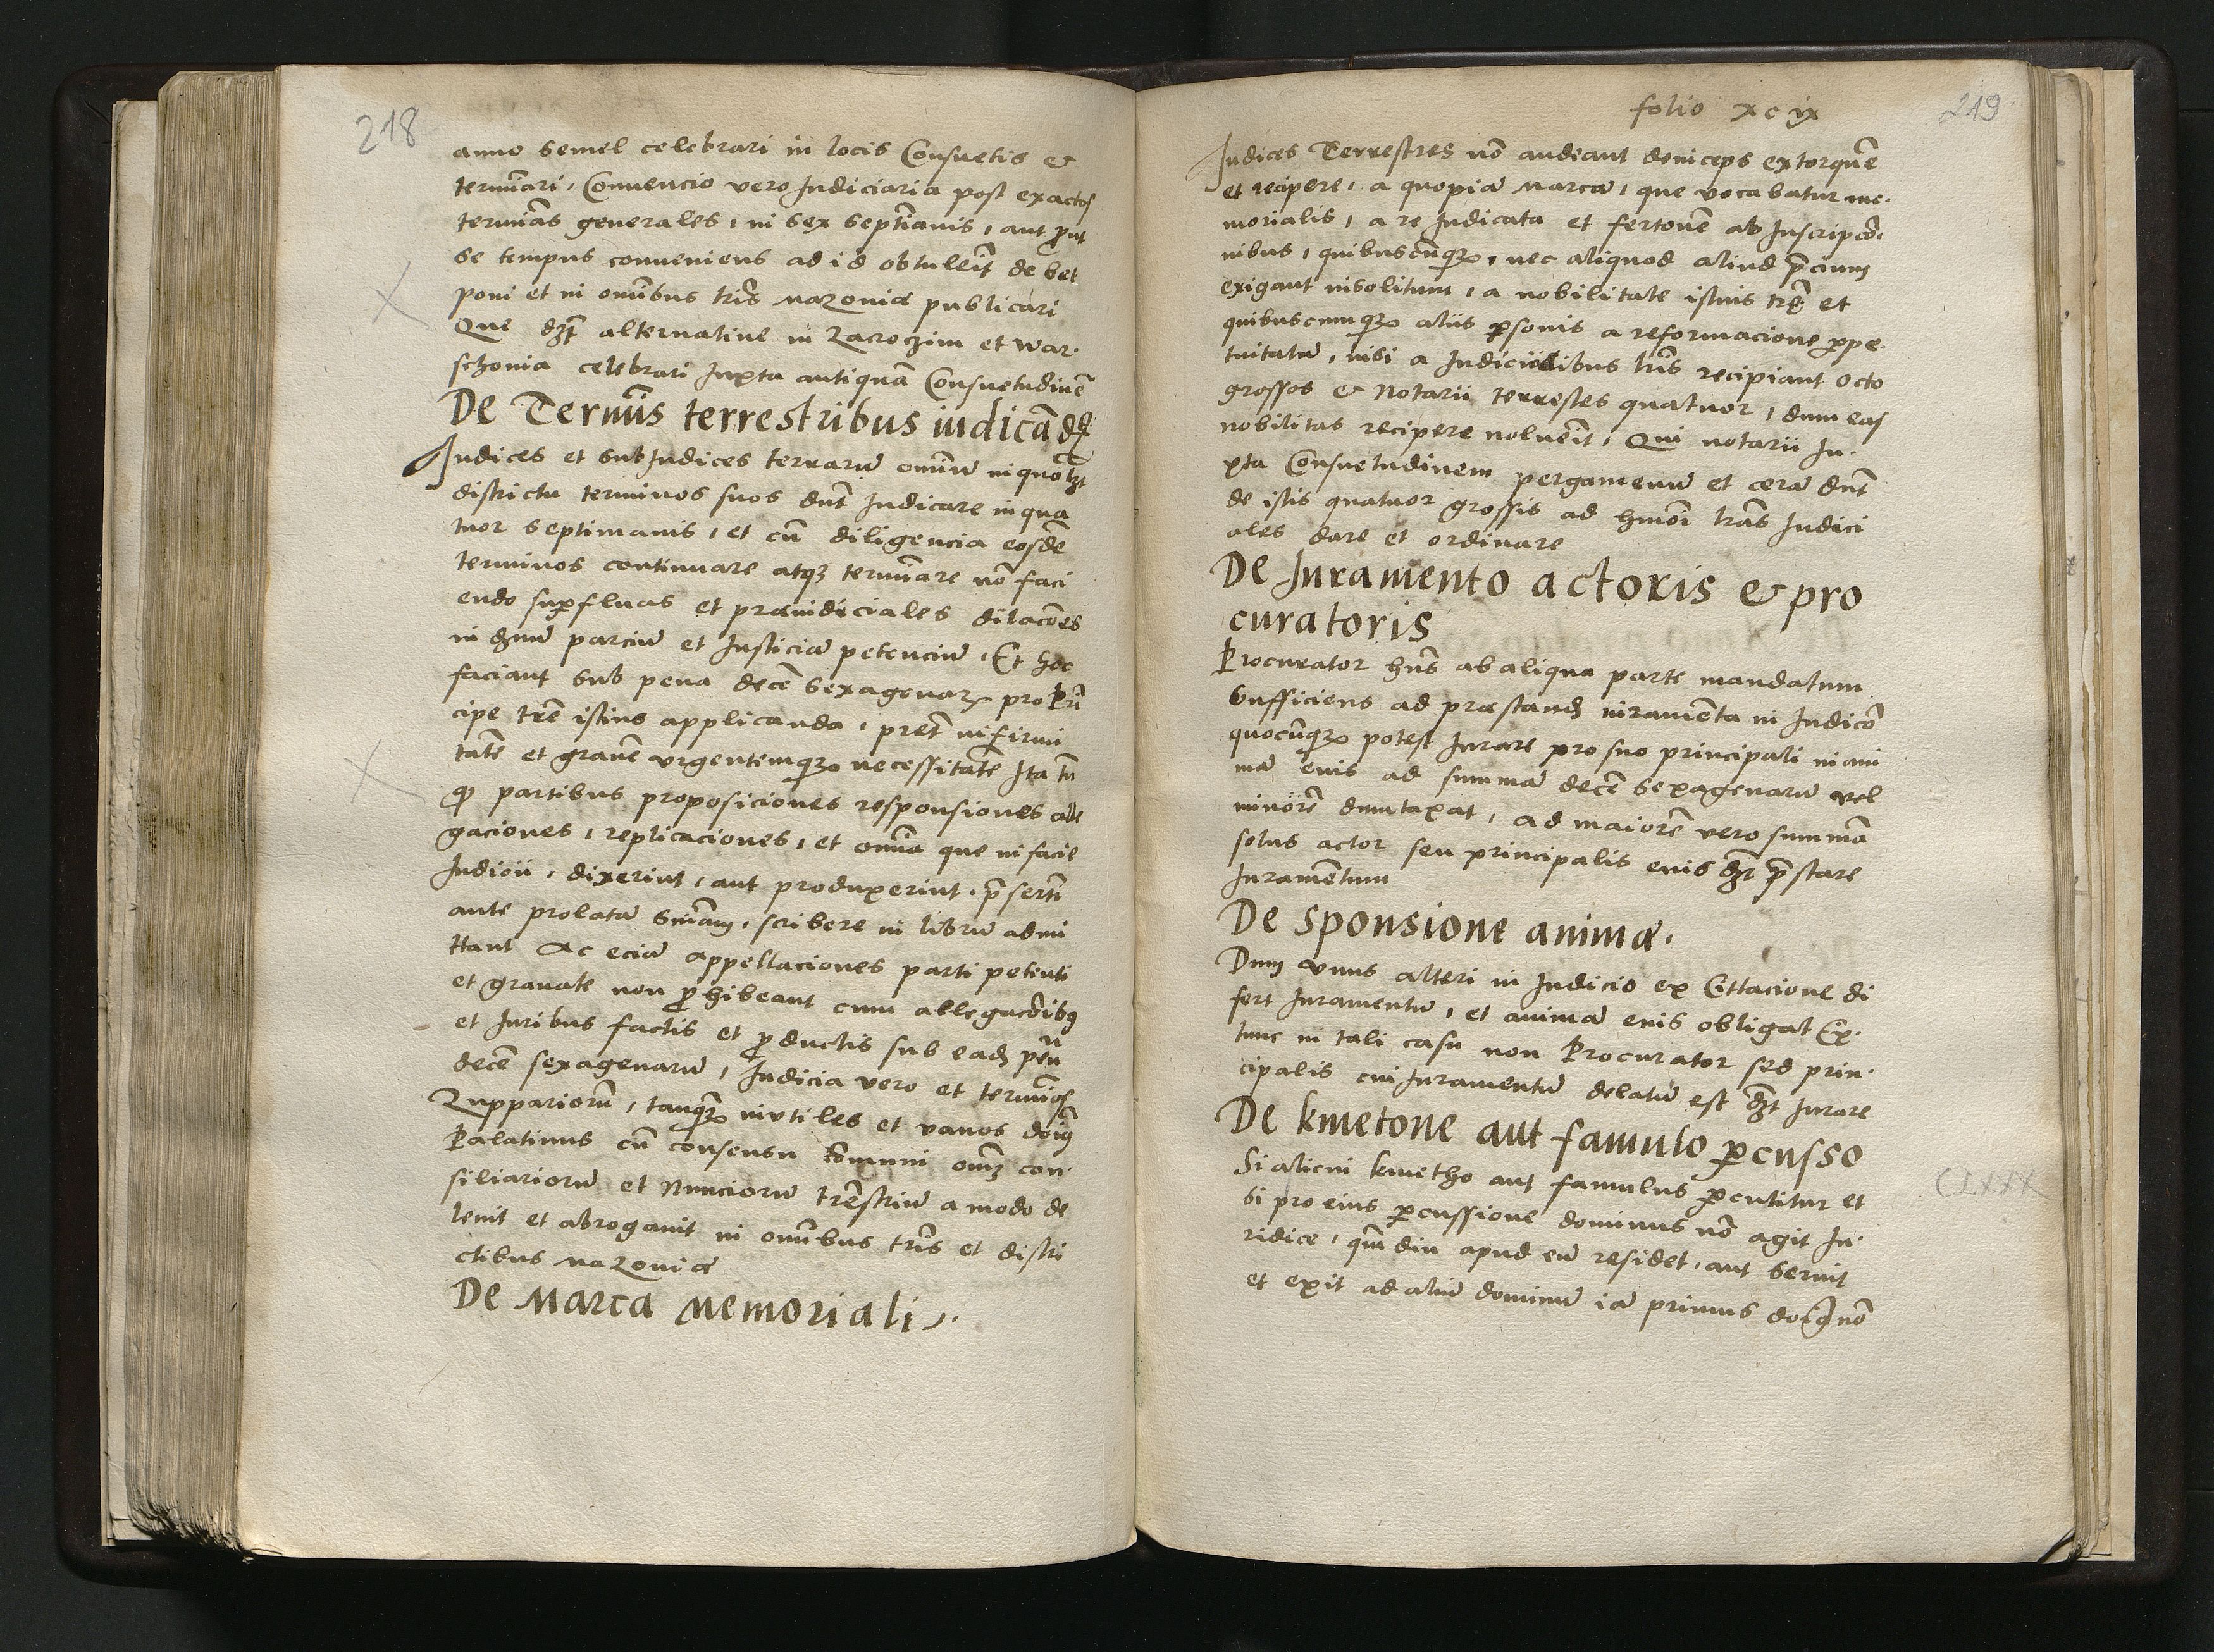 218
anno semel celebrari in locis Consuetis &
termīari, Convencio vero Judiciaria post exactos
termīos generales, in sex septīanis, aut ꝓut
se tempus conueniens ad id obtulerīt debet
poni et in omībus tr̄is Mazoniæ publicari
Que dꝫt alternatiue in Zacroczim et War-
schonia celebrari Juxta antiquā Consuetudinē
De Termīs terrestribus iudicād
Judices et SubJudices terrarū omniū in quolꝫt
districtu terminos suos dn̄t Judicare in qua
tuor septimanis, et cū diligencia eosdē
terminos continuare atqꝫ termīare nō faci
endo suꝑfluas et præiudiciales dilacōes
in dꝫnū parciū et Justiciā petenciū, Et hoc
faciant sub pena decē sexagenaꝝ pro Prī
cipe trē istius applicanda, pretꝰ infirmi
tatē et grauē vrgentemqꝫ necessitatē Ita tn̄
ꝙ partibus proposiciones responsiones alle
gaciones, replicaciones, et omīa que in facie
Judicii, dixerint, aut produxerint, p̄sertī
ante prolatā Snīam, scribere in librū admi
ttant Ac eciā appellaciones parti petenti
et grauate non ꝓhibeant cum allegacōibꝰ
et Juribus factis et ꝓductis sub eadꝫ pena
decē sexagenarū, Judicia vero et termīos
Zuppariorū, tanqꝫ inutiles et vanos dn̄s
Palatinus cū consensu cōmuni om̄ꝫ con-
siliariorū et Nunciorū trēstriū a modo de
leuit et abrogauit in omībus tr̄is et distri
ctibus Mazoniæ
De Marca Memoriali
folio xcix
219
Judices Terrestres nō audeant deinceps extorquē
et recipere, a quopiā Marcā, que vocabatur me-
morialis, a re Judicata et fertonē ab Inscripcō-
nibus, quibuscūqꝫ, nec aliquod aliud p̄cium
exigant insolitum, a nobilitate istius tr̄e et
quibuscumqꝫ aliis ꝑsonis a reformacione ꝑpe-
tuitatū, nisi a Judicialibus lr̄is recipiant octo
grossos & Notarii terrestes quatuor, dum eas
nobilitas recipere voluerīt, Qui notarii Ju-
xta Consuetudinem pergamenū et cerā dn̄t
de istis quatuor grossis ad hmōi lrās Judici
ales dare et ordinare
De Juramento actoris & pro
curatoris
Procurator hn̄s ab aliqua parte mandatum
Sufficiens ad præstandꝫ iuramenta in Judicō
quocūqꝫ potest Jurare pro suo principali in ani
mā euis ad summā decē sexagenarū vel
minorē dumtaxat, ad maiorē vero summā
solus actor seu principalis euis dꝫt p̄stare
Juramētum
De sponsione animæ.
Dum vnus alteri in Judicio ex Cittacione di
fert Juramentū, et animā euis obligat Ex-
tunc in tali casu non Procurator sed prin-
cipalis cui Juramentū delatū est dꝫt Jurare
De kmetone aut famulo ꝑcusso
Si alicui kmetho aut famulus ꝑcutitur et
si pro eius ꝑcussione dominus nō agit Ju-
ridice, qmdiu apud eū residet, aut seruit
et exit ad aliū dominū iā primus dn̄s nō
CLXXX